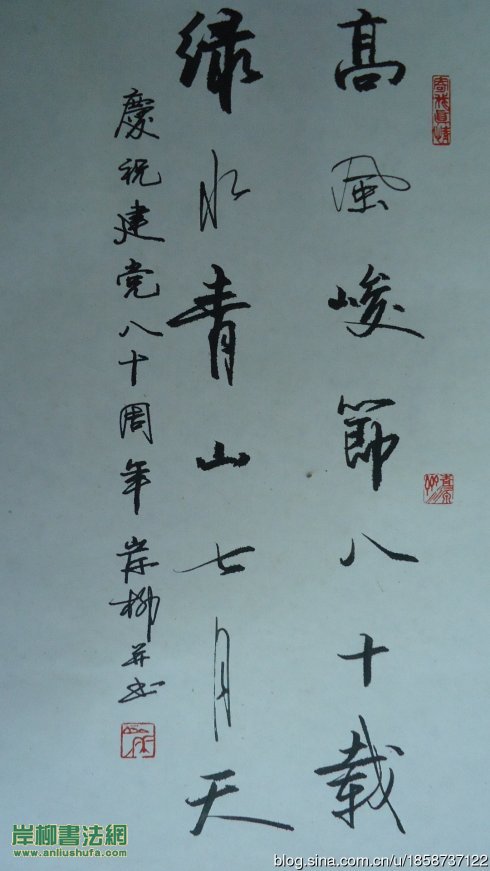 高風峻節八十載
緑水青山七月天
慶祝建党八十周年 岸柳并书
岸柳書法網
www.anliushufa.com
blog.sina.com.cn/u/1858737122